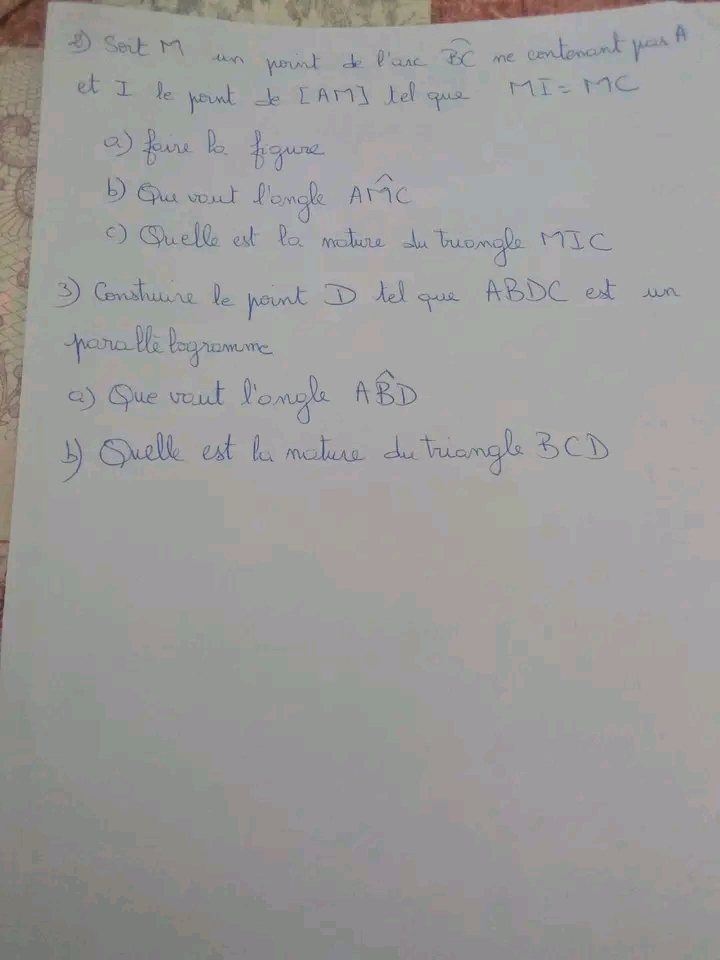 2) Soit M un point de l'arc B͡C ne contenant pas A
et I le point de [AM] tel que MI = MC
a) faire la figure
b) Que vaut l'angle AM̂C
c) Quelle est la nature du triangle MIC
3) Construire le point D tel que ABDC est un
parallèlogramme
a) Que vaut l'angle AB̂D
b) Quelle est la nature du triangle BCD